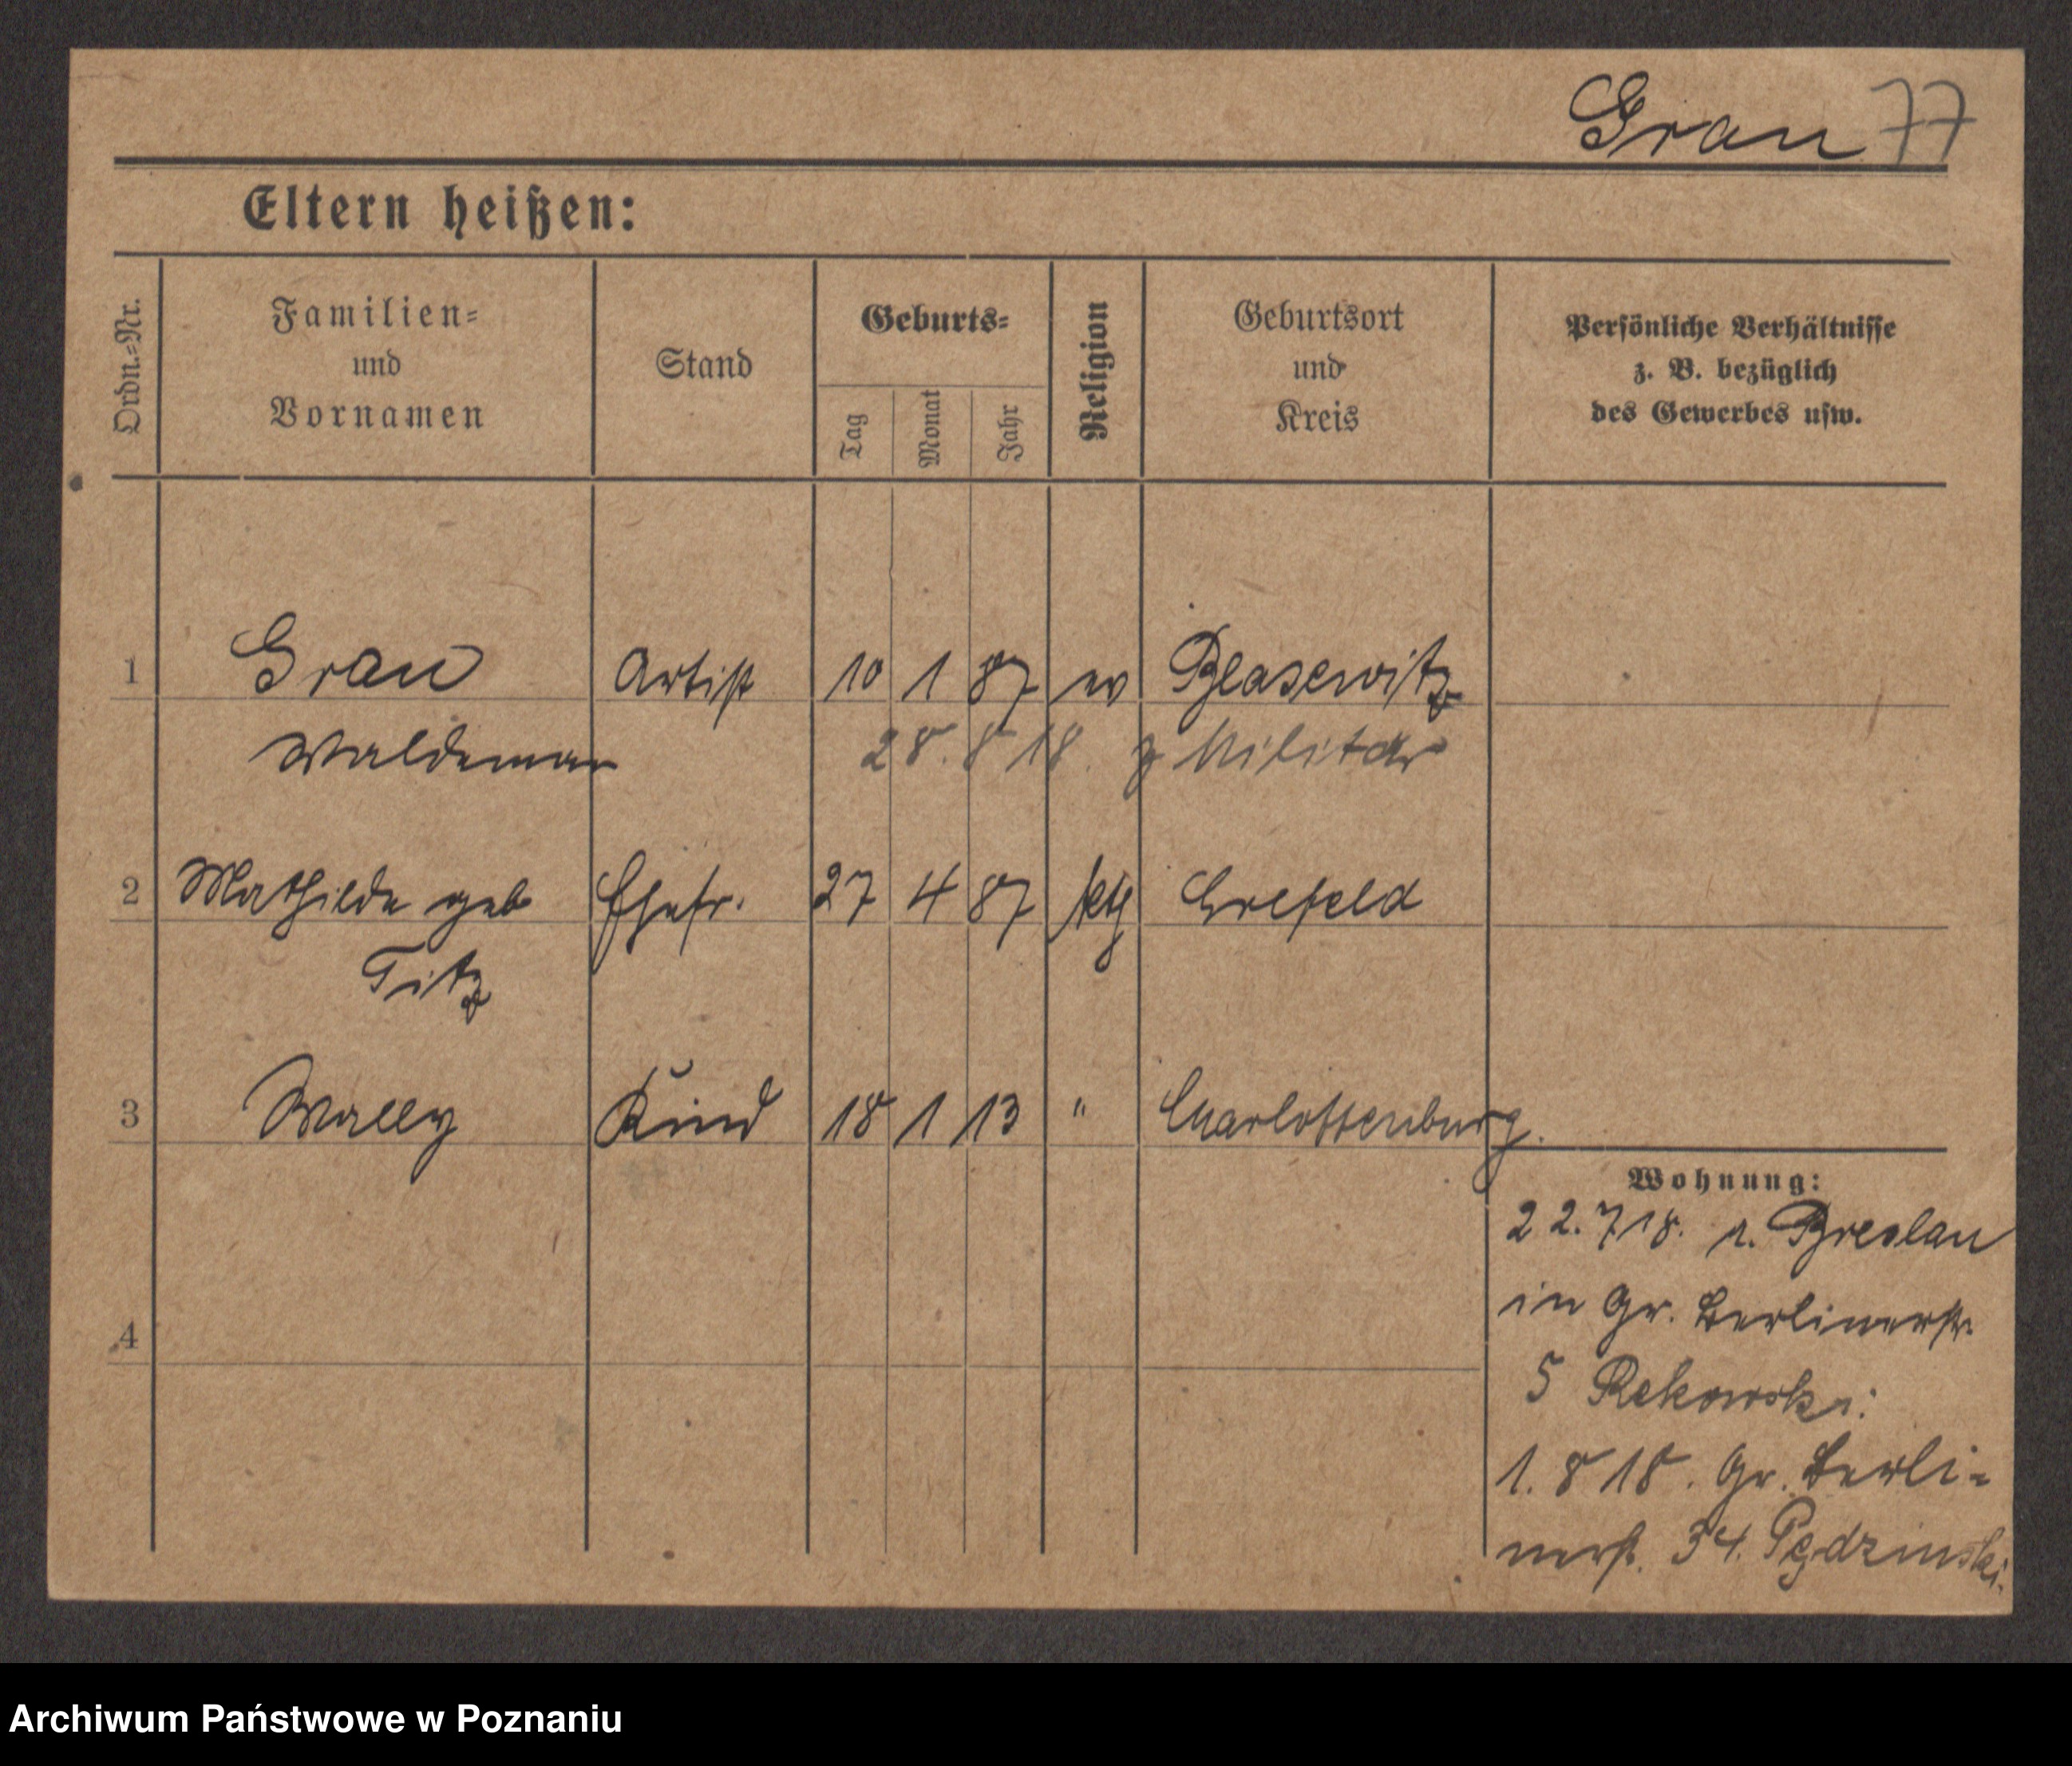 Gran 77
Eltern heißen:
Ordn.=Nr.
Familien=
und
Vornamen
Stand
Geburts=
Tag
Monat
Jahr
Religion
Geburtsort
und
Kreis
Persönliche Verhältnisse
z. B. bezüglich
des Gewerbes usw.
1 Grau Artist 10 1 87 ev Blasewitz
Waldemar 28. 8 18. z Militär
2 Mathilde geb Ehefr. 27 4 87 kth Crefeld
Titz
3 Wally Kind 18 1 13 " Charlottenburg.
Wohnung:
22. 7 18. v. Breslau
in Gr. Berlinerstr.
5 Rekowski:
1. 8 18. Gr. Berli=
nerst. 34. Pędzinski.
4
Archiwum Państwowe w Poznaniu